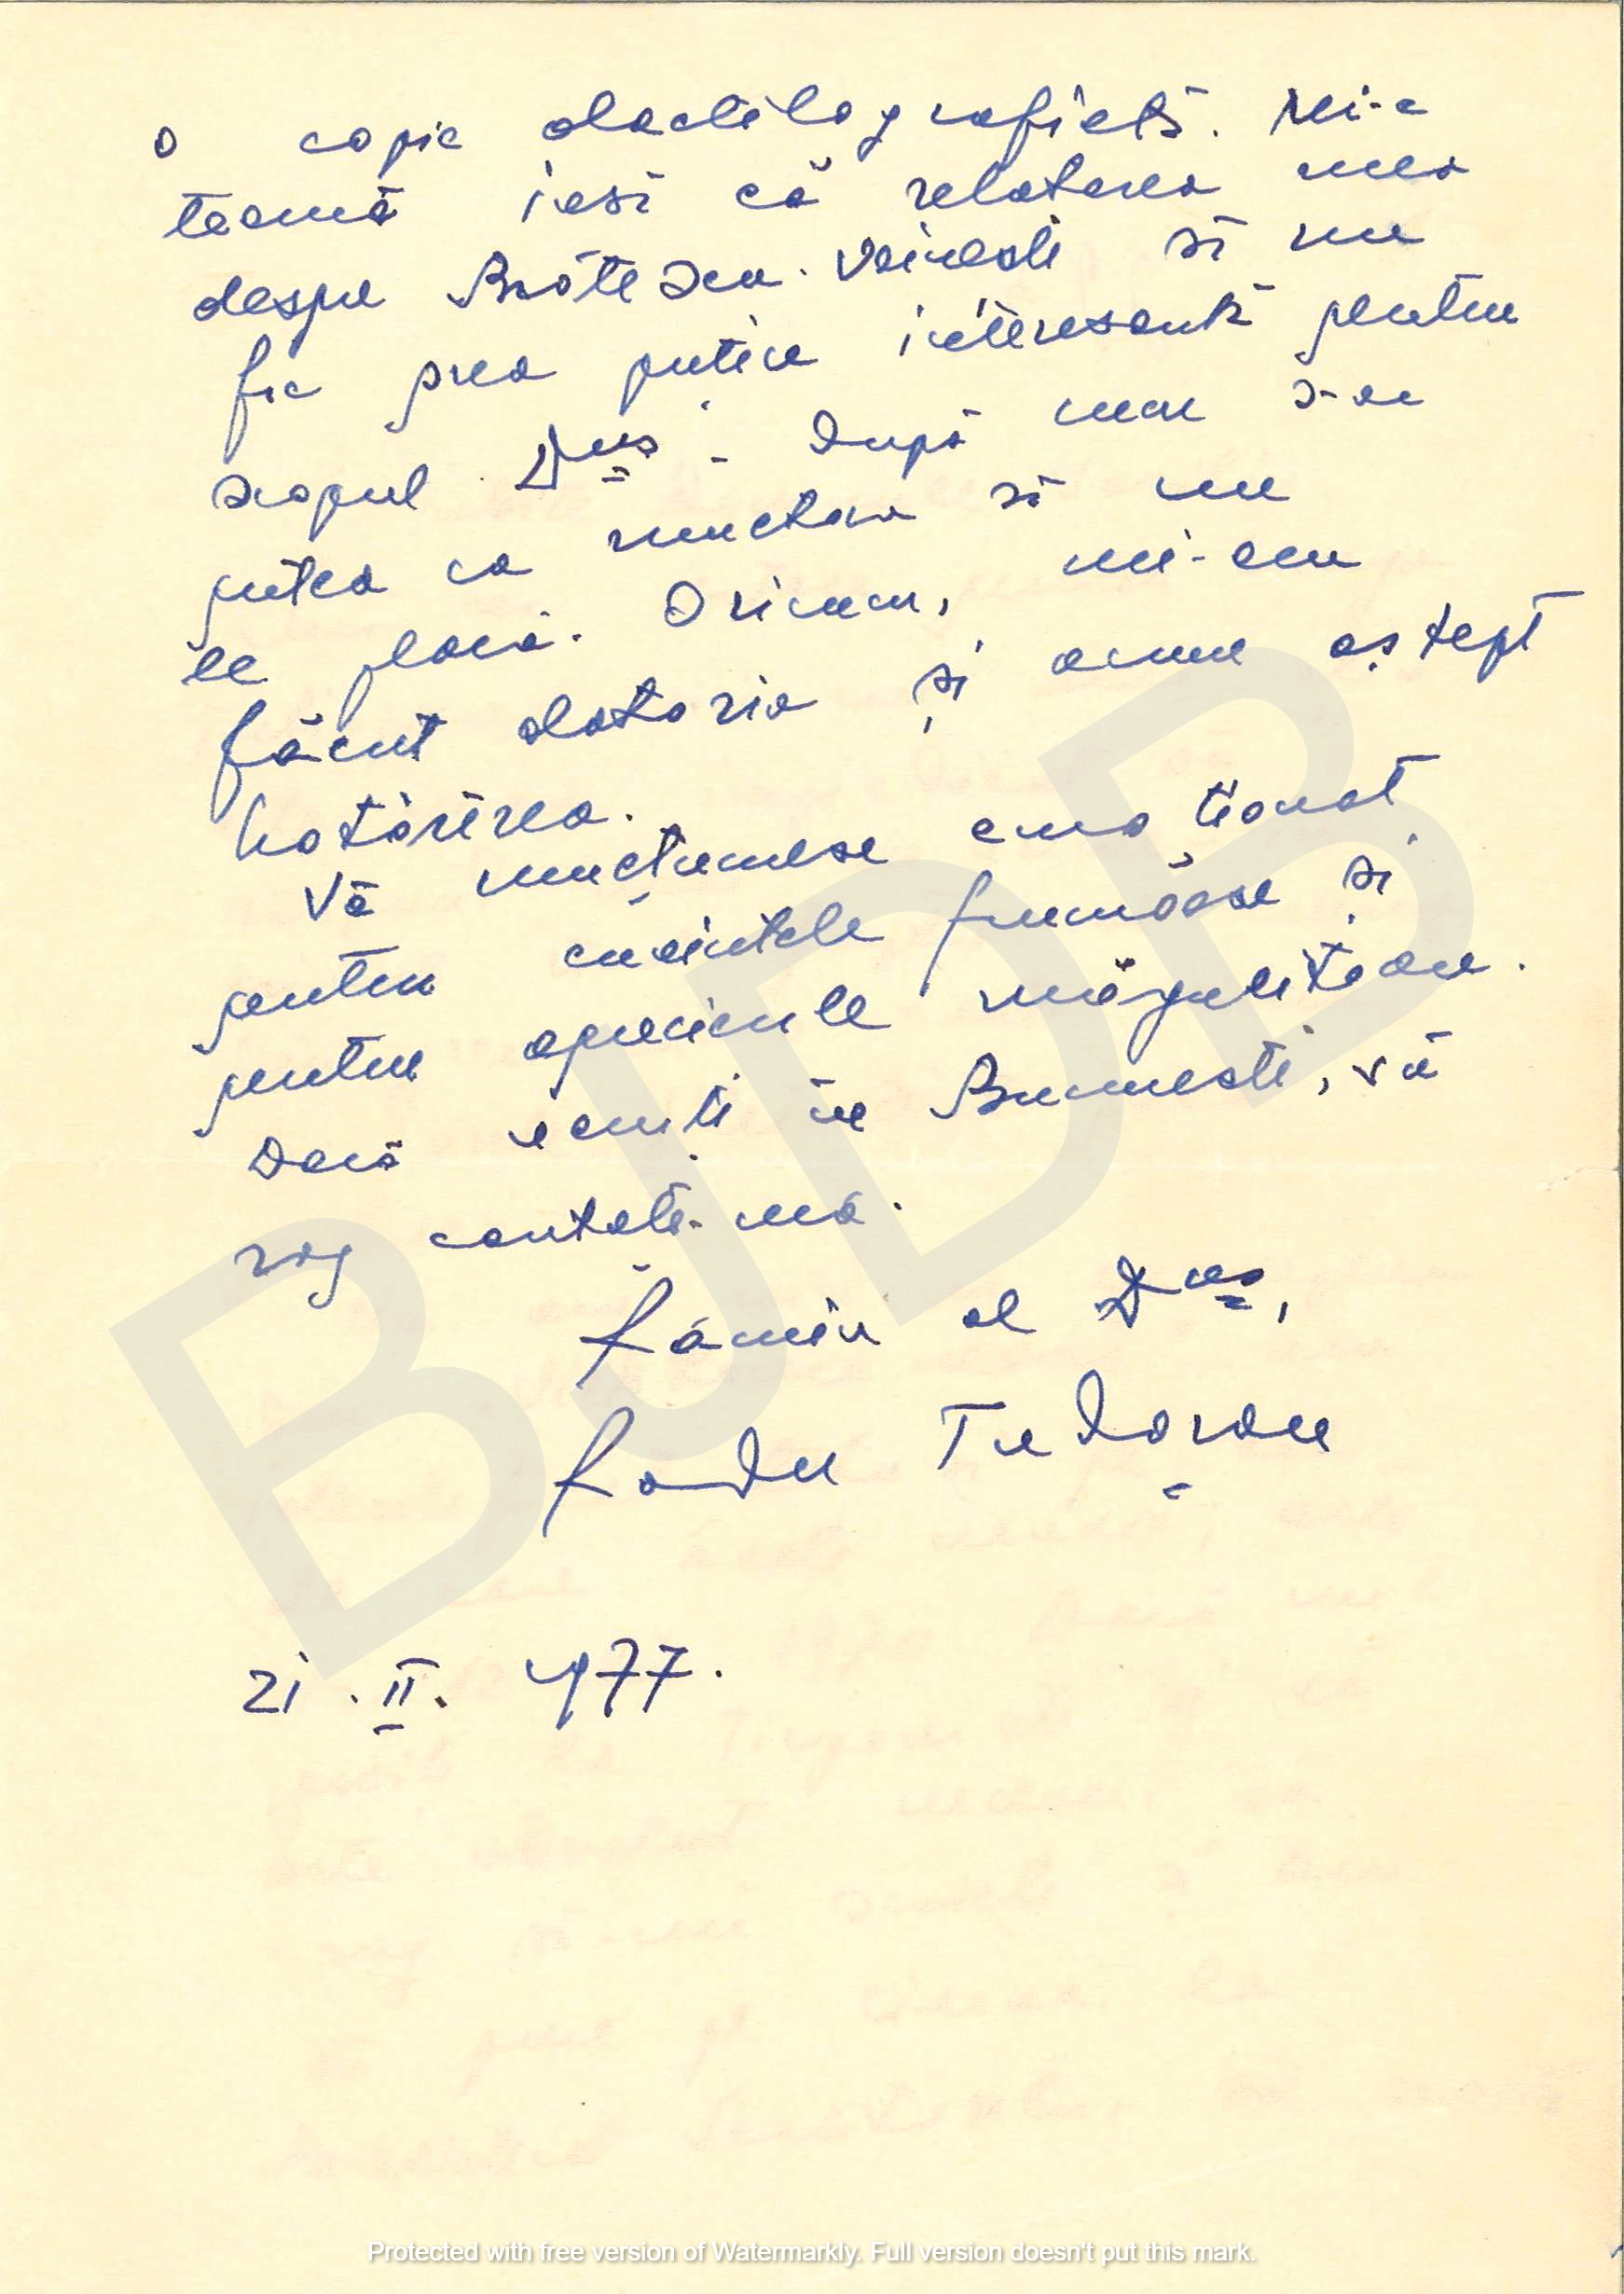 o copie dactilografiată. Mi-e
teamă însă că relatarea mea
despre Brătescu-Voinești să nu
fie prea puțin interesantă pentru
scopul Dvs. După cum s-ar
putea ca muncitorii să nu
le placă. Oricum, mi-am
făcut datoria și acum aștept
hotărîrea.
Vă mulțumesc emoționat
pentru cuvintele frumoase și
pentru aprecierile măgulitoare.
Dacă veniți în București, vă
rog căutați-mă.
Rămîn al Dvs,
Radu Tudoran
21.II.977.
BJDB
Protected with free version of Watermarkly. Full version doesn't put this mark.